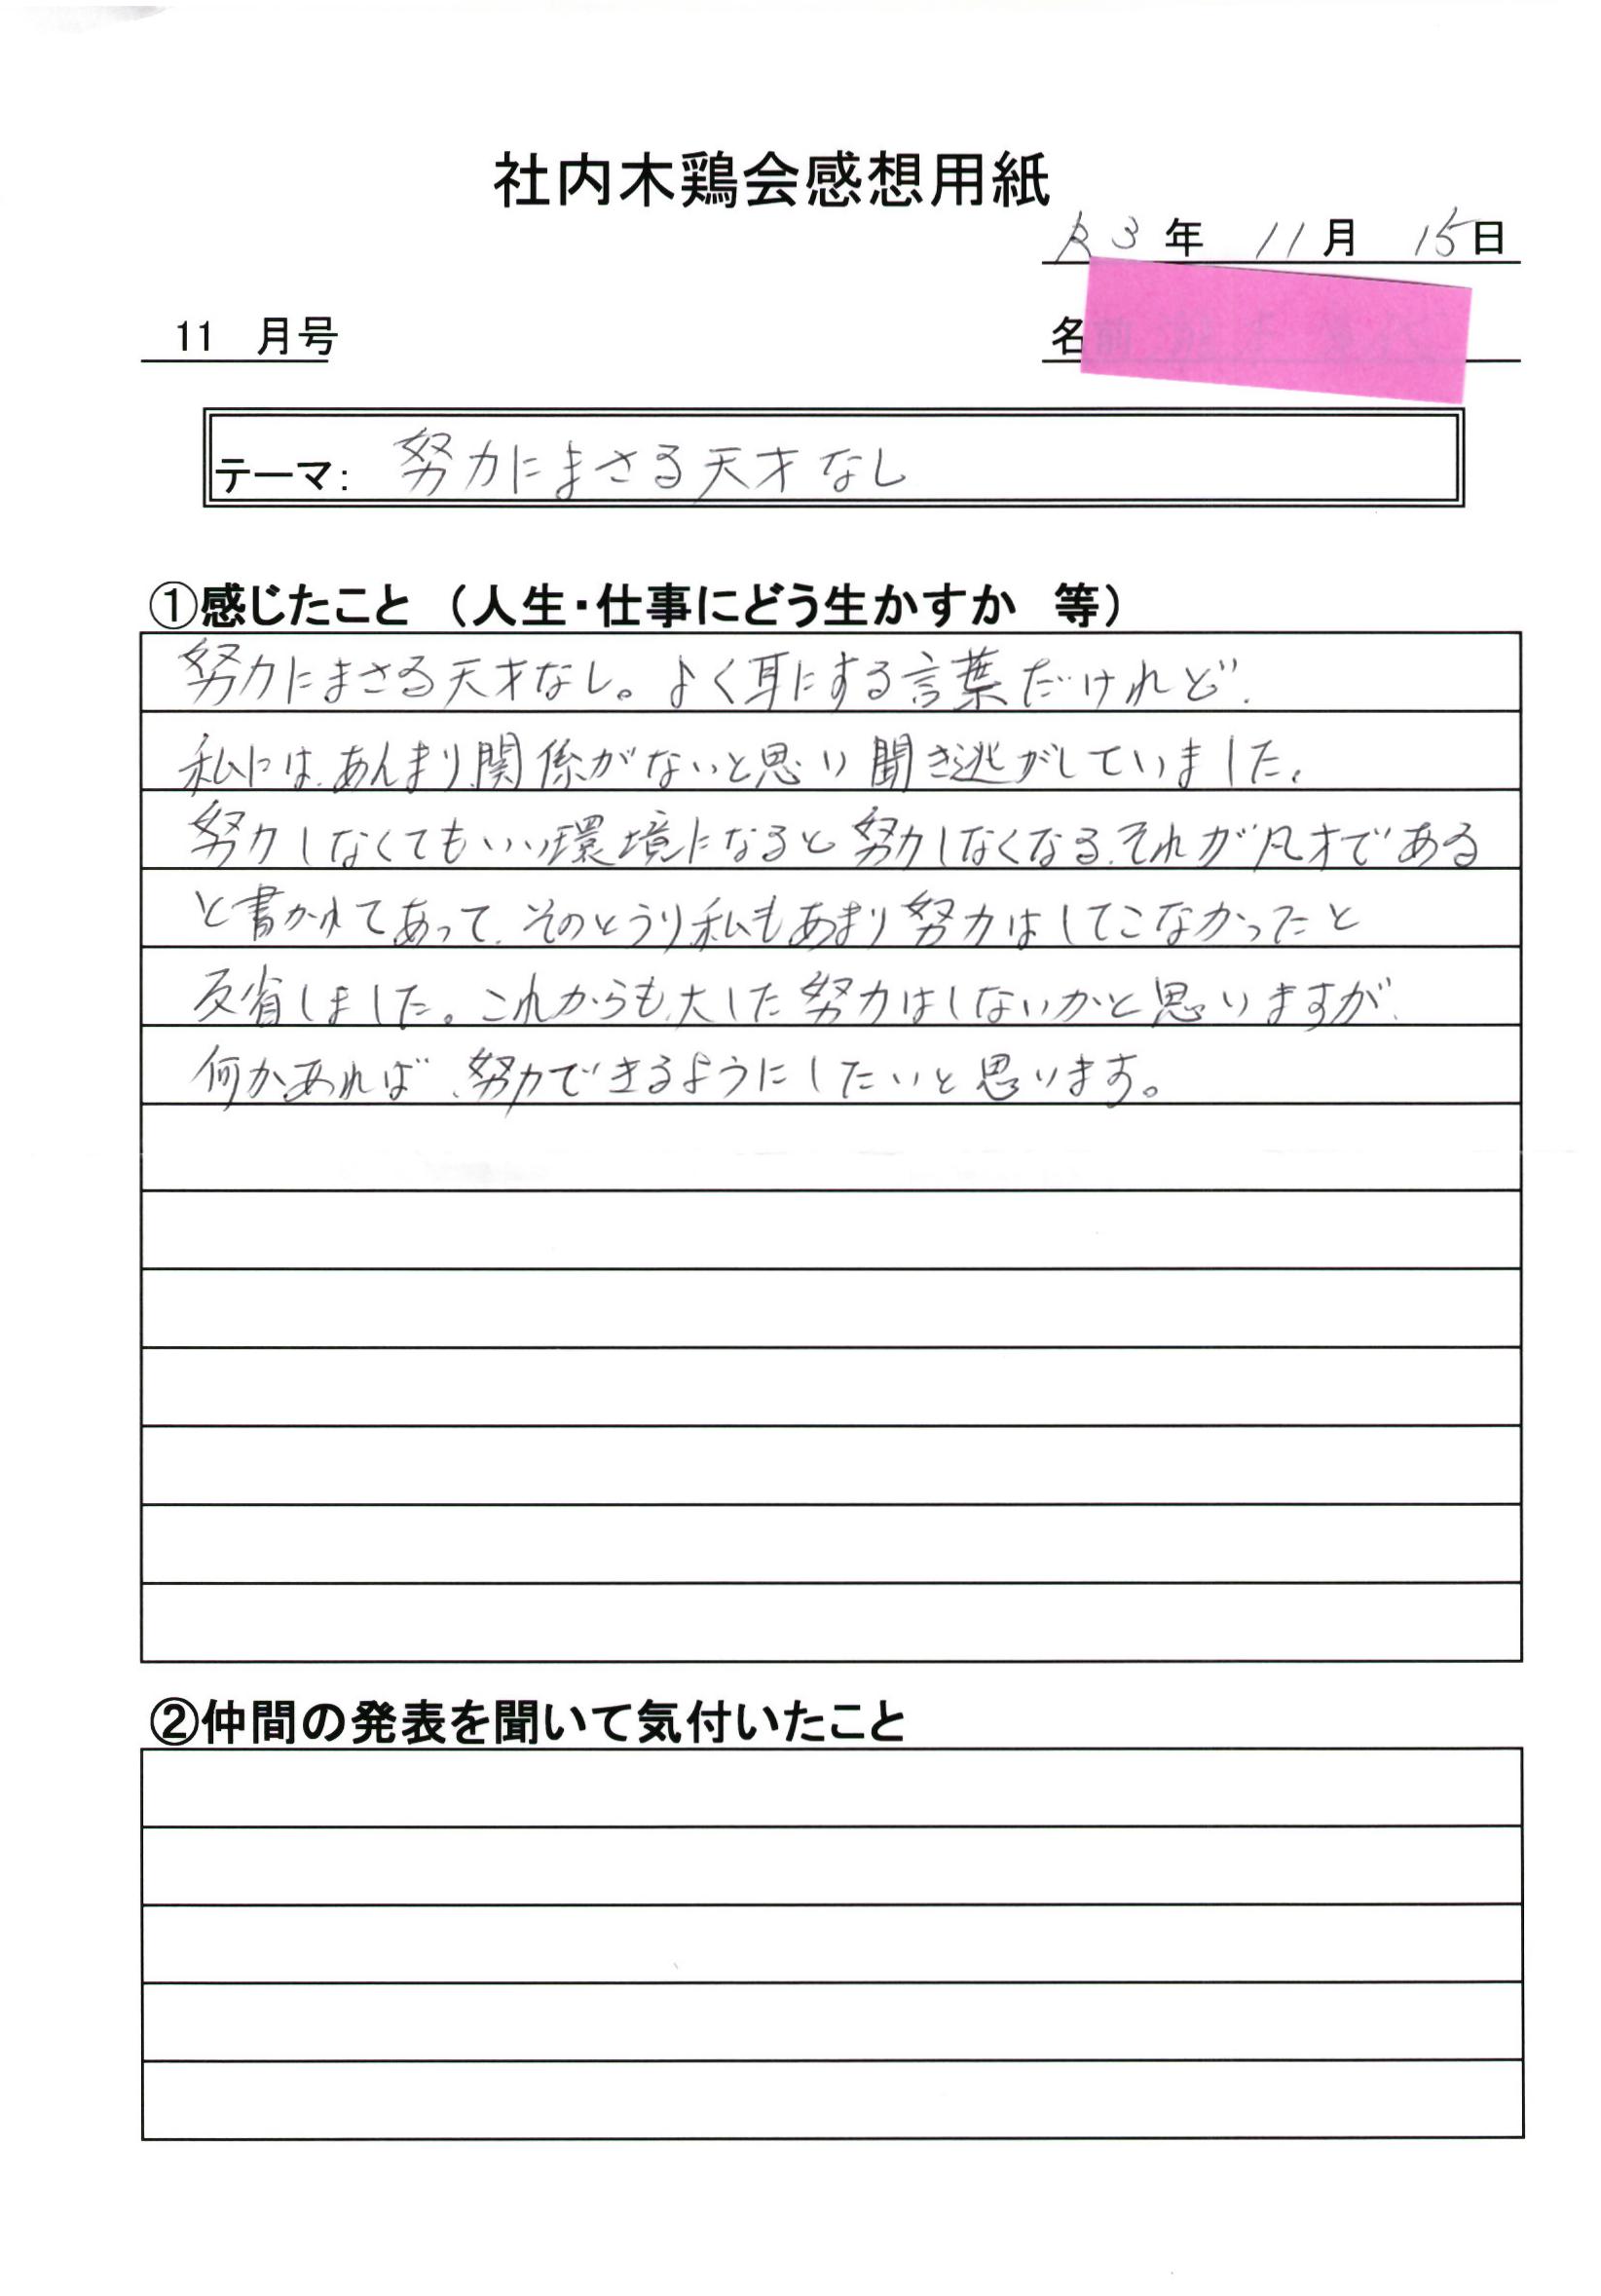 社内木鶏会感想用紙
R3年 11月 15日
11 月号
名
テーマ: 努力にまさる天才なし
①感じたこと （人生・仕事にどう生かすか 等）
努力にまさる天才なし。よく耳にする言葉だけれど、
私には、あんまり関係がないと思い聞き逃がしていました。
努力しなくてもいい環境になると努力しなくなる、それが凡才である
と書かれてあって、そのとうり私もあまり努力はしてこなかったと
反省しました。これからも大した努力はしないかと思いますが、
何かあれば、努力できるようにしたいと思います。
②仲間の発表を聞いて気付いたこと